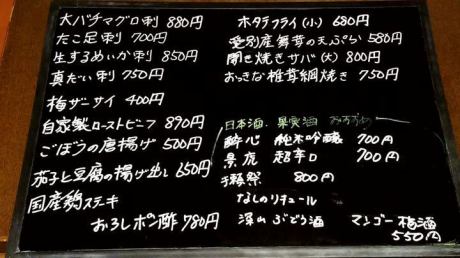 大バチマグロ刺 880円
たこ足刺 700円
生するめいか刺 850円
真だい刺 750円
梅ザーサイ 400円
自家製ローストビーフ 890円
ごぼうの唐揚げ 500円
茄子と豆腐の揚げ出し 650円
国産鶏ステーキ
おろしポン酢 780円
ホタテフライ(小) 680円
愛別産舞茸の天ぷら 580円
開き焼きサバ(大) 800円
おっきな椎茸網焼き 750円
日本酒、果実酒 おすすめ
酔心 純米吟醸 700円
景虎 超辛口 700円
獺祭 800円
なしのリキュール
深山ぶどう酒 マンゴー梅酒
550円